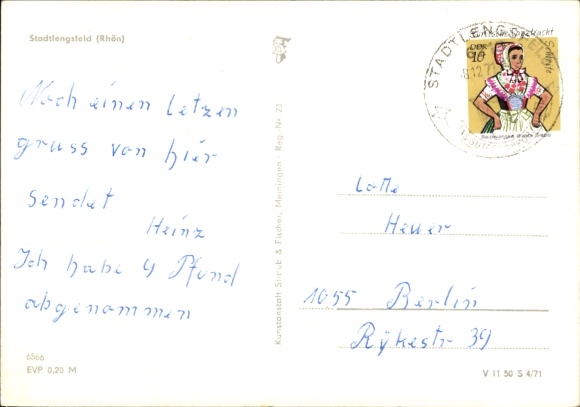 Stadtlengsfeld (Rhön)
Noch einen letzen
gruss von hier
sendet
Heinz
Ich habe 4 Pfund
abgenommen
6566
EVP 0,20 M
Kunstanstalt Straub & Fischer, Meiningen · Reg.-Nr. 23
STADTLENGSFELD
8.12.71
DDR
10
Lotte
Heuer
1055 Berlin
Rykestr 39
V 11 50 S 4/71